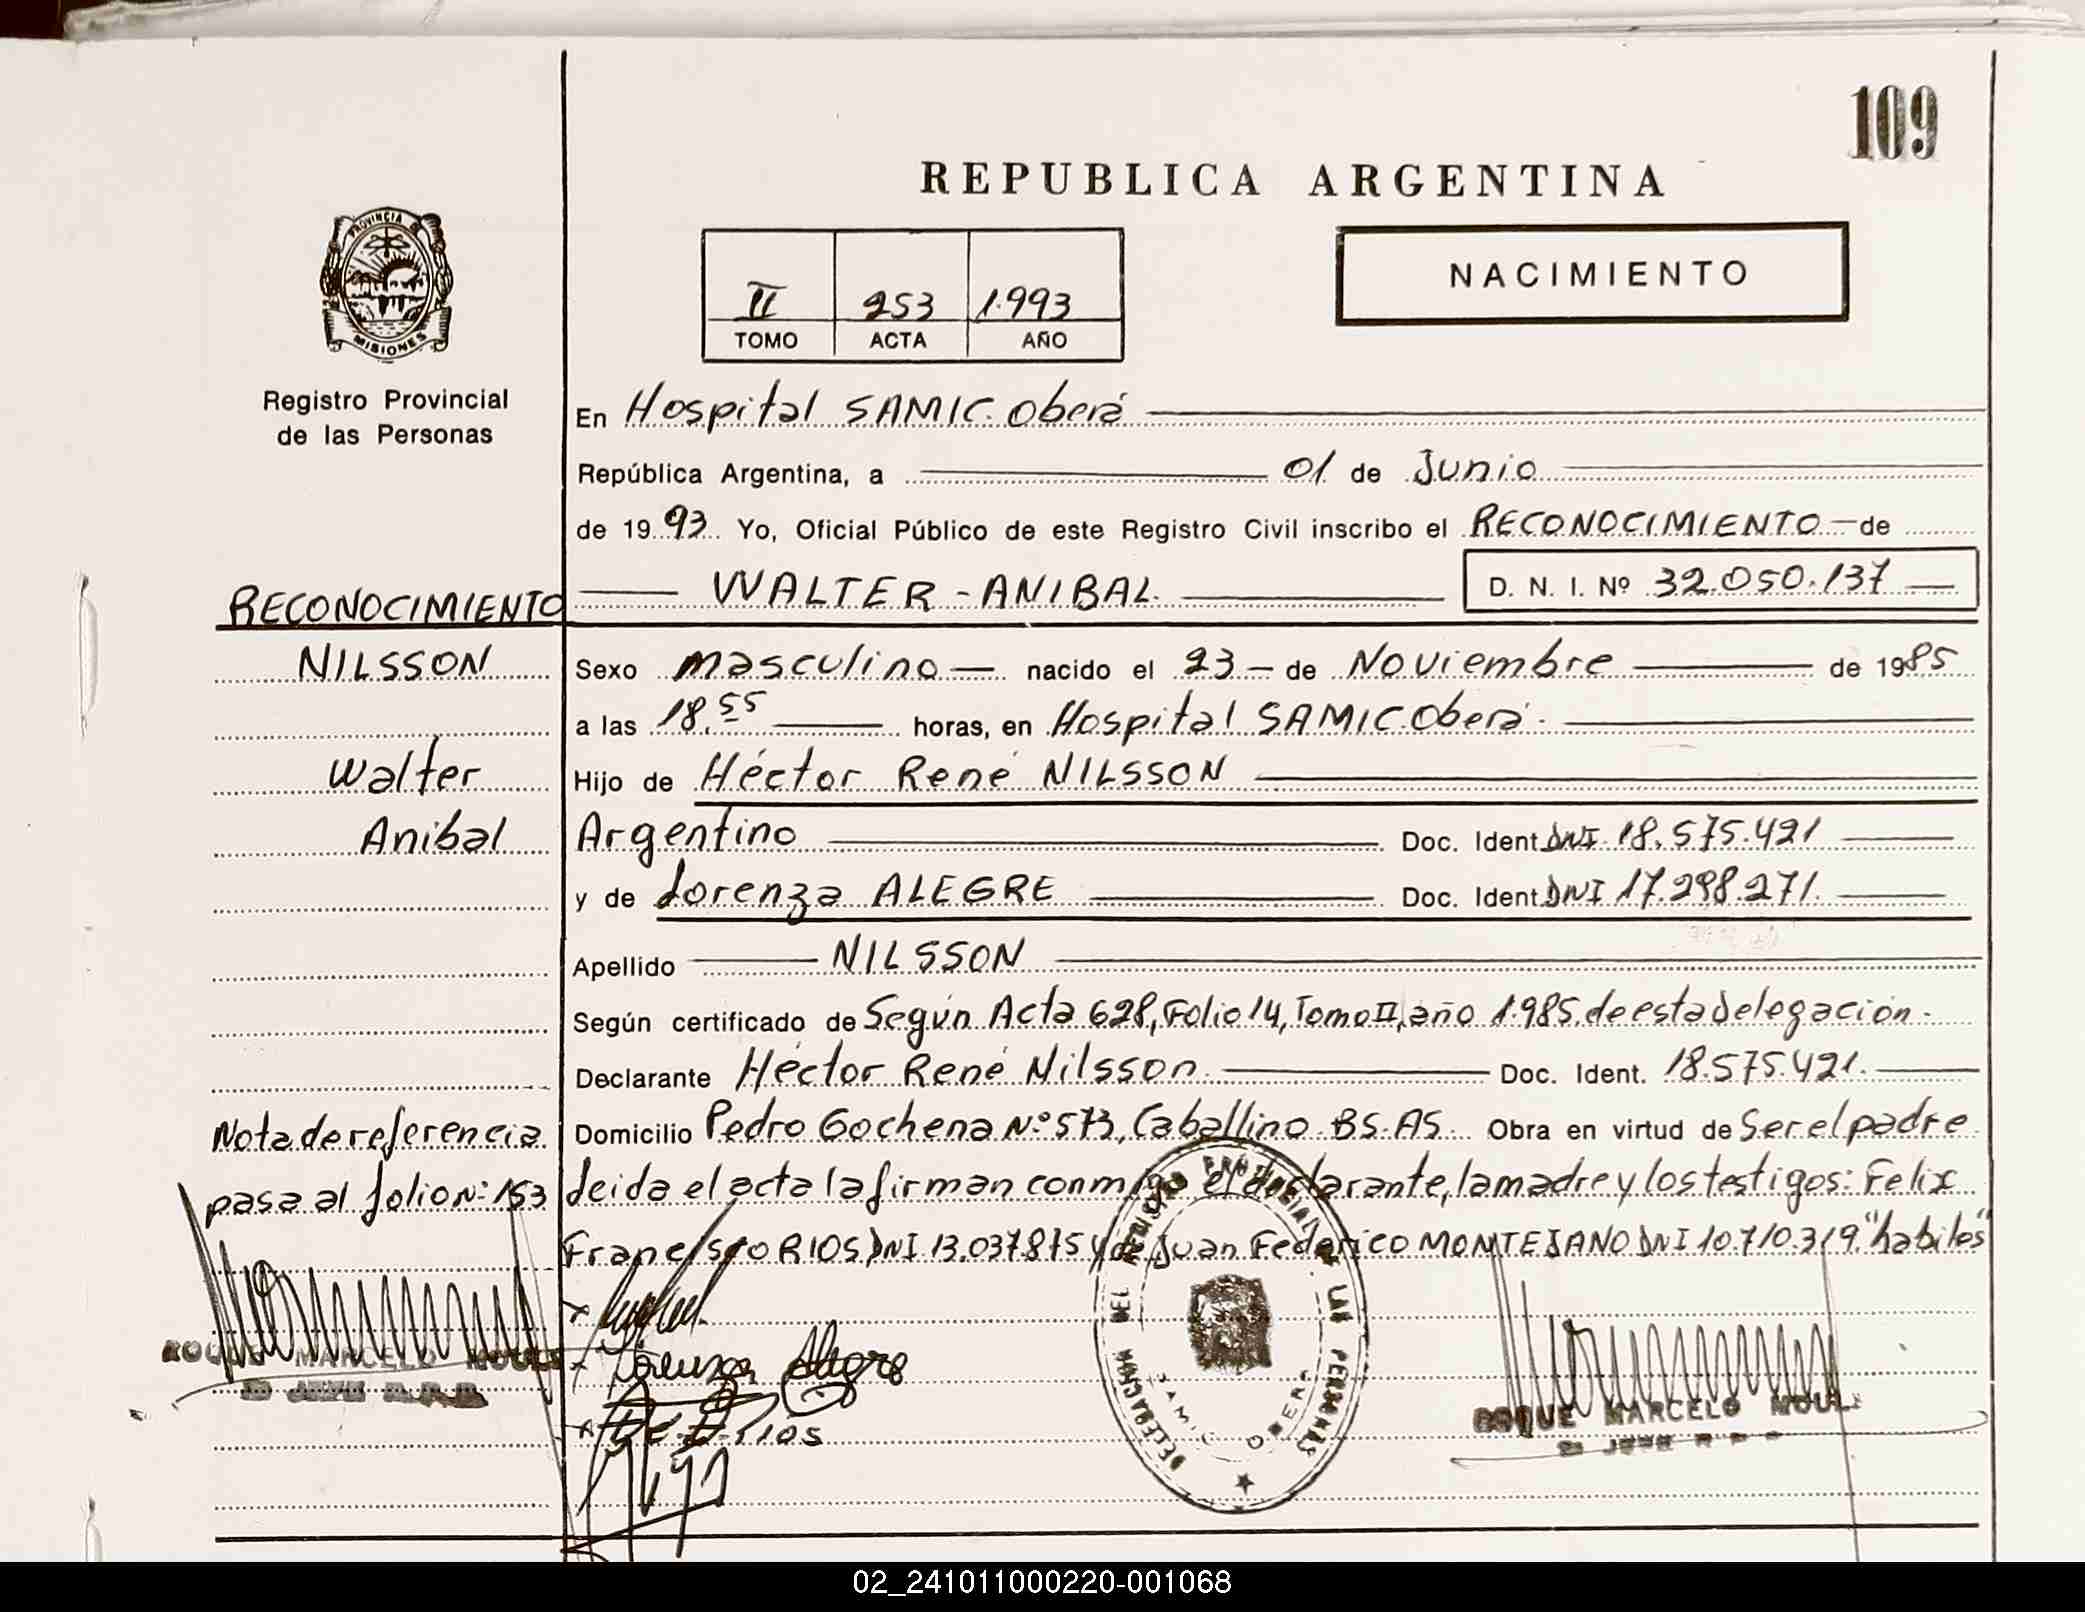 109
REPUBLICA ARGENTINA
PROVINCIA DE
MISIONES
II 253 1.993
TOMO ACTA AÑO
NACIMIENTO
Registro Provincial
de las Personas
En Hospital SAMIC. Oberá
República Argentina, a 01 de Junio
de 1993. Yo, Oficial Público de este Registro Civil inscribo el RECONOCIMIENTO de
RECONOCIMIENTO WALTER - ANIBAL. D. N. I. Nº 32.050.137
NILSSON Sexo masculino nacido el 23 de Noviembre de 1985
a las 18.55 horas, en Hospital SAMIC. Oberá.
Walter Hijo de Héctor René NILSSON
Anibal Argentino Doc. Ident. DNI. 18.575.421
y de Lorenza ALEGRE Doc. Ident. DNI 17.298.271.
Apellido NILSSON
Según certificado de Según Acta 628, Folio 14, Tomo II, año 1.985. de esta delegación.
Declarante Héctor René Nilsson. Doc. Ident. 18.575.421.
Nota de referencia Domicilio Pedro Gochena Nº 573, Caballino. BS. AS. Obra en virtud de Ser el padre
pasa al folio Nº: 153 Leida el acta la firman conmigo el declarante, la madre y los testigos: Felix
Francisco RIOS, DNI 13.037.875 y de Juan Federico MONTEJANO DNI 10.710.319. "habiles"
Lorenza Alegre
Rios
DELEGACION DEL REGISTRO PROVINCIAL DE LAS PERSONAS
SAMIC OBERA
ROQUE MARCELO
ROQUE MARCELO
02_241011000220-001068